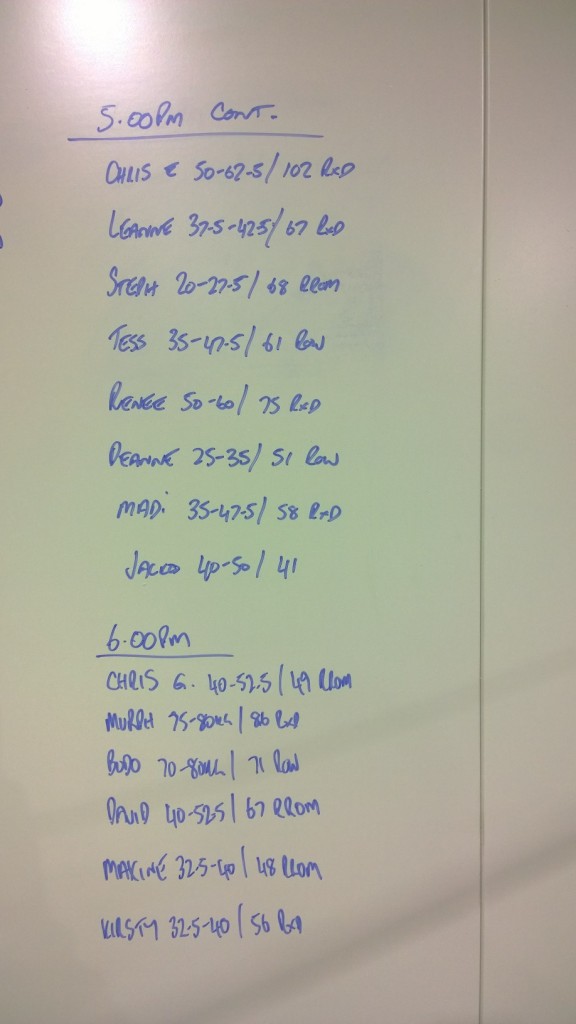 5.00PM CONT.
CHRIS E 50-62.5/102 RXD
LEANNE 37.5-42.5/67 RXD
STEPH 20-27.5/68 RROM
TESS 35-47.5/61 ROW
RENEE 50-60/75 RXD
DEANNE 25-35/51 ROW
MADI 35-47.5/58 RXD
40-50/41
6.00PM
CHRIS G. 40-52.5/49 RROM
MURPH 75-80KG/86 RXD
BODO 70-80KG/71 ROW
DAVID 40-52.5/67 RROM
MAXINE 32.5-40/48 RROM
KIRSTY 32.5-40/56 RXD